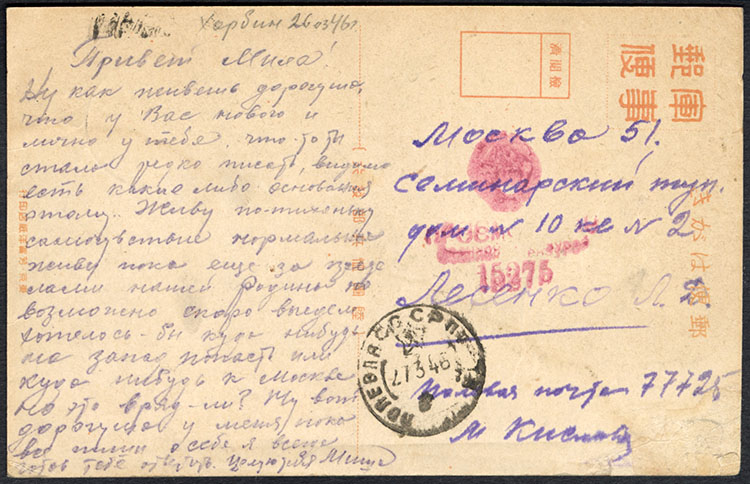 Харбин 26 03 46 г
Привет Мила!
Ну как живешь дорогуша,
что у Вас нового и
лично у тебя, что-то ты
стала редко писать, видимо
есть какие либо основания
этому. Живу по-тихоньку
самочувствие нормальное
живу пока еще за преде
лами нашей Родины но
возможно скоро выедем
хотелось-бы куда нибудь
на запад попасть или
куда нибудь к Москве
но это вряд-ли? Ну вот
дорогуша у меня пока
все пиши о себе я всегда
готов тебе ответить. Целую тебя Миша
軍事
郵便
檢閱濟
Москва 51.
Семинарский туп.
дом № 10 кв № 2
Лесенко Л.
15275
ПОЛЕВАЯ СССР ПОЧТА
27 3 46
Полевая почта 77725
М